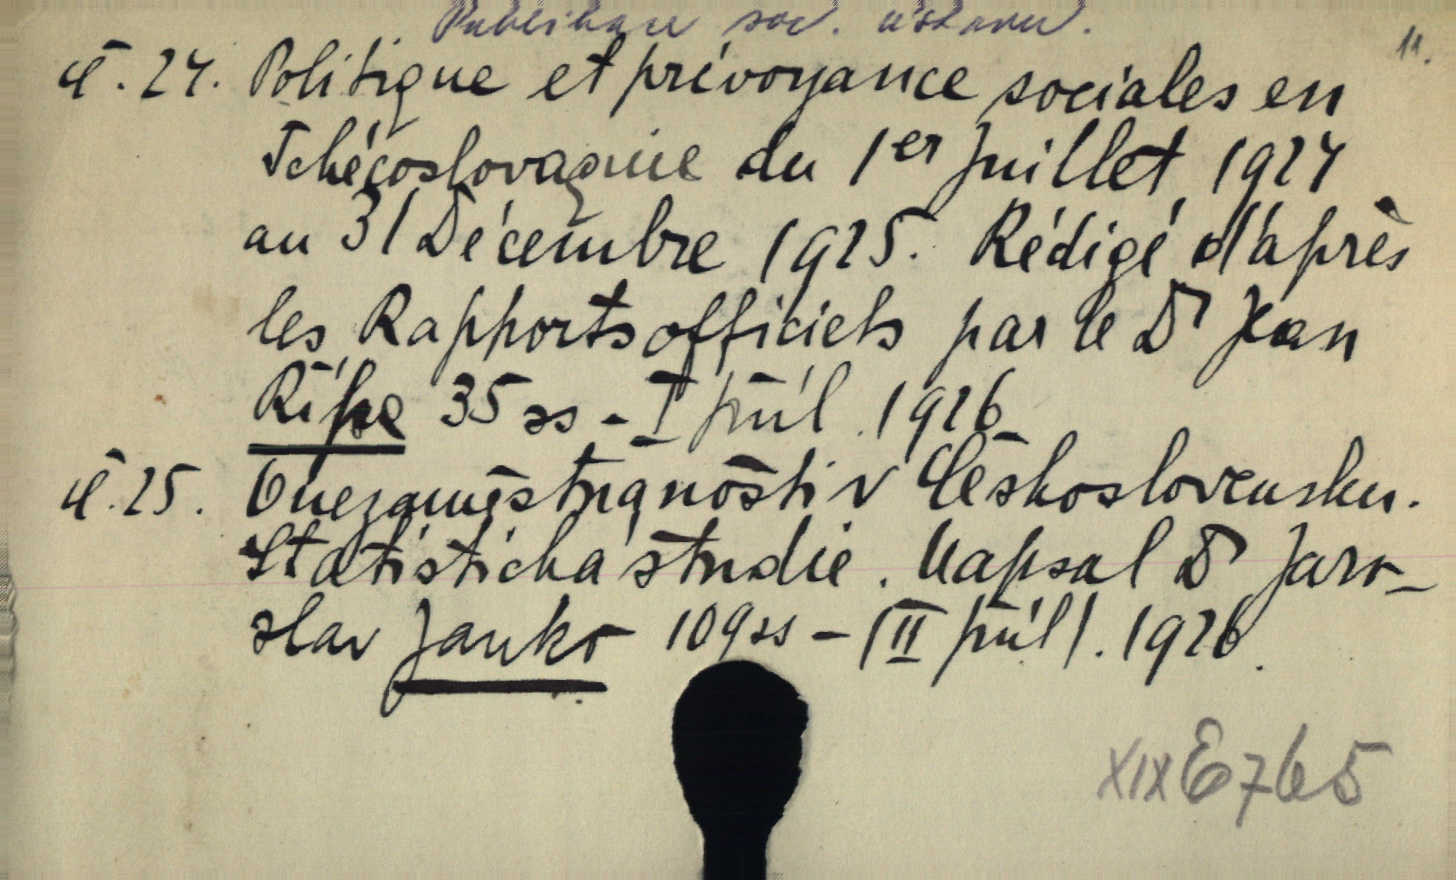 Publikace soc. ústavu.
11.
č. 24. Politique et prévoyance sociales en
Tchécoslovaquie du 1er Juillet 1924
au 31 Décembre 1925. Rédigé d'après
les Rapports officiels par le Dr Jean
Říhe 35 ss - I půl. 1926
č. 25. O nezaměstnanosti v Československu.
Statistická studie. Napsal Dr Jaro-
slav Janko 109 ss - (II půl). 1926.
XIX E 765